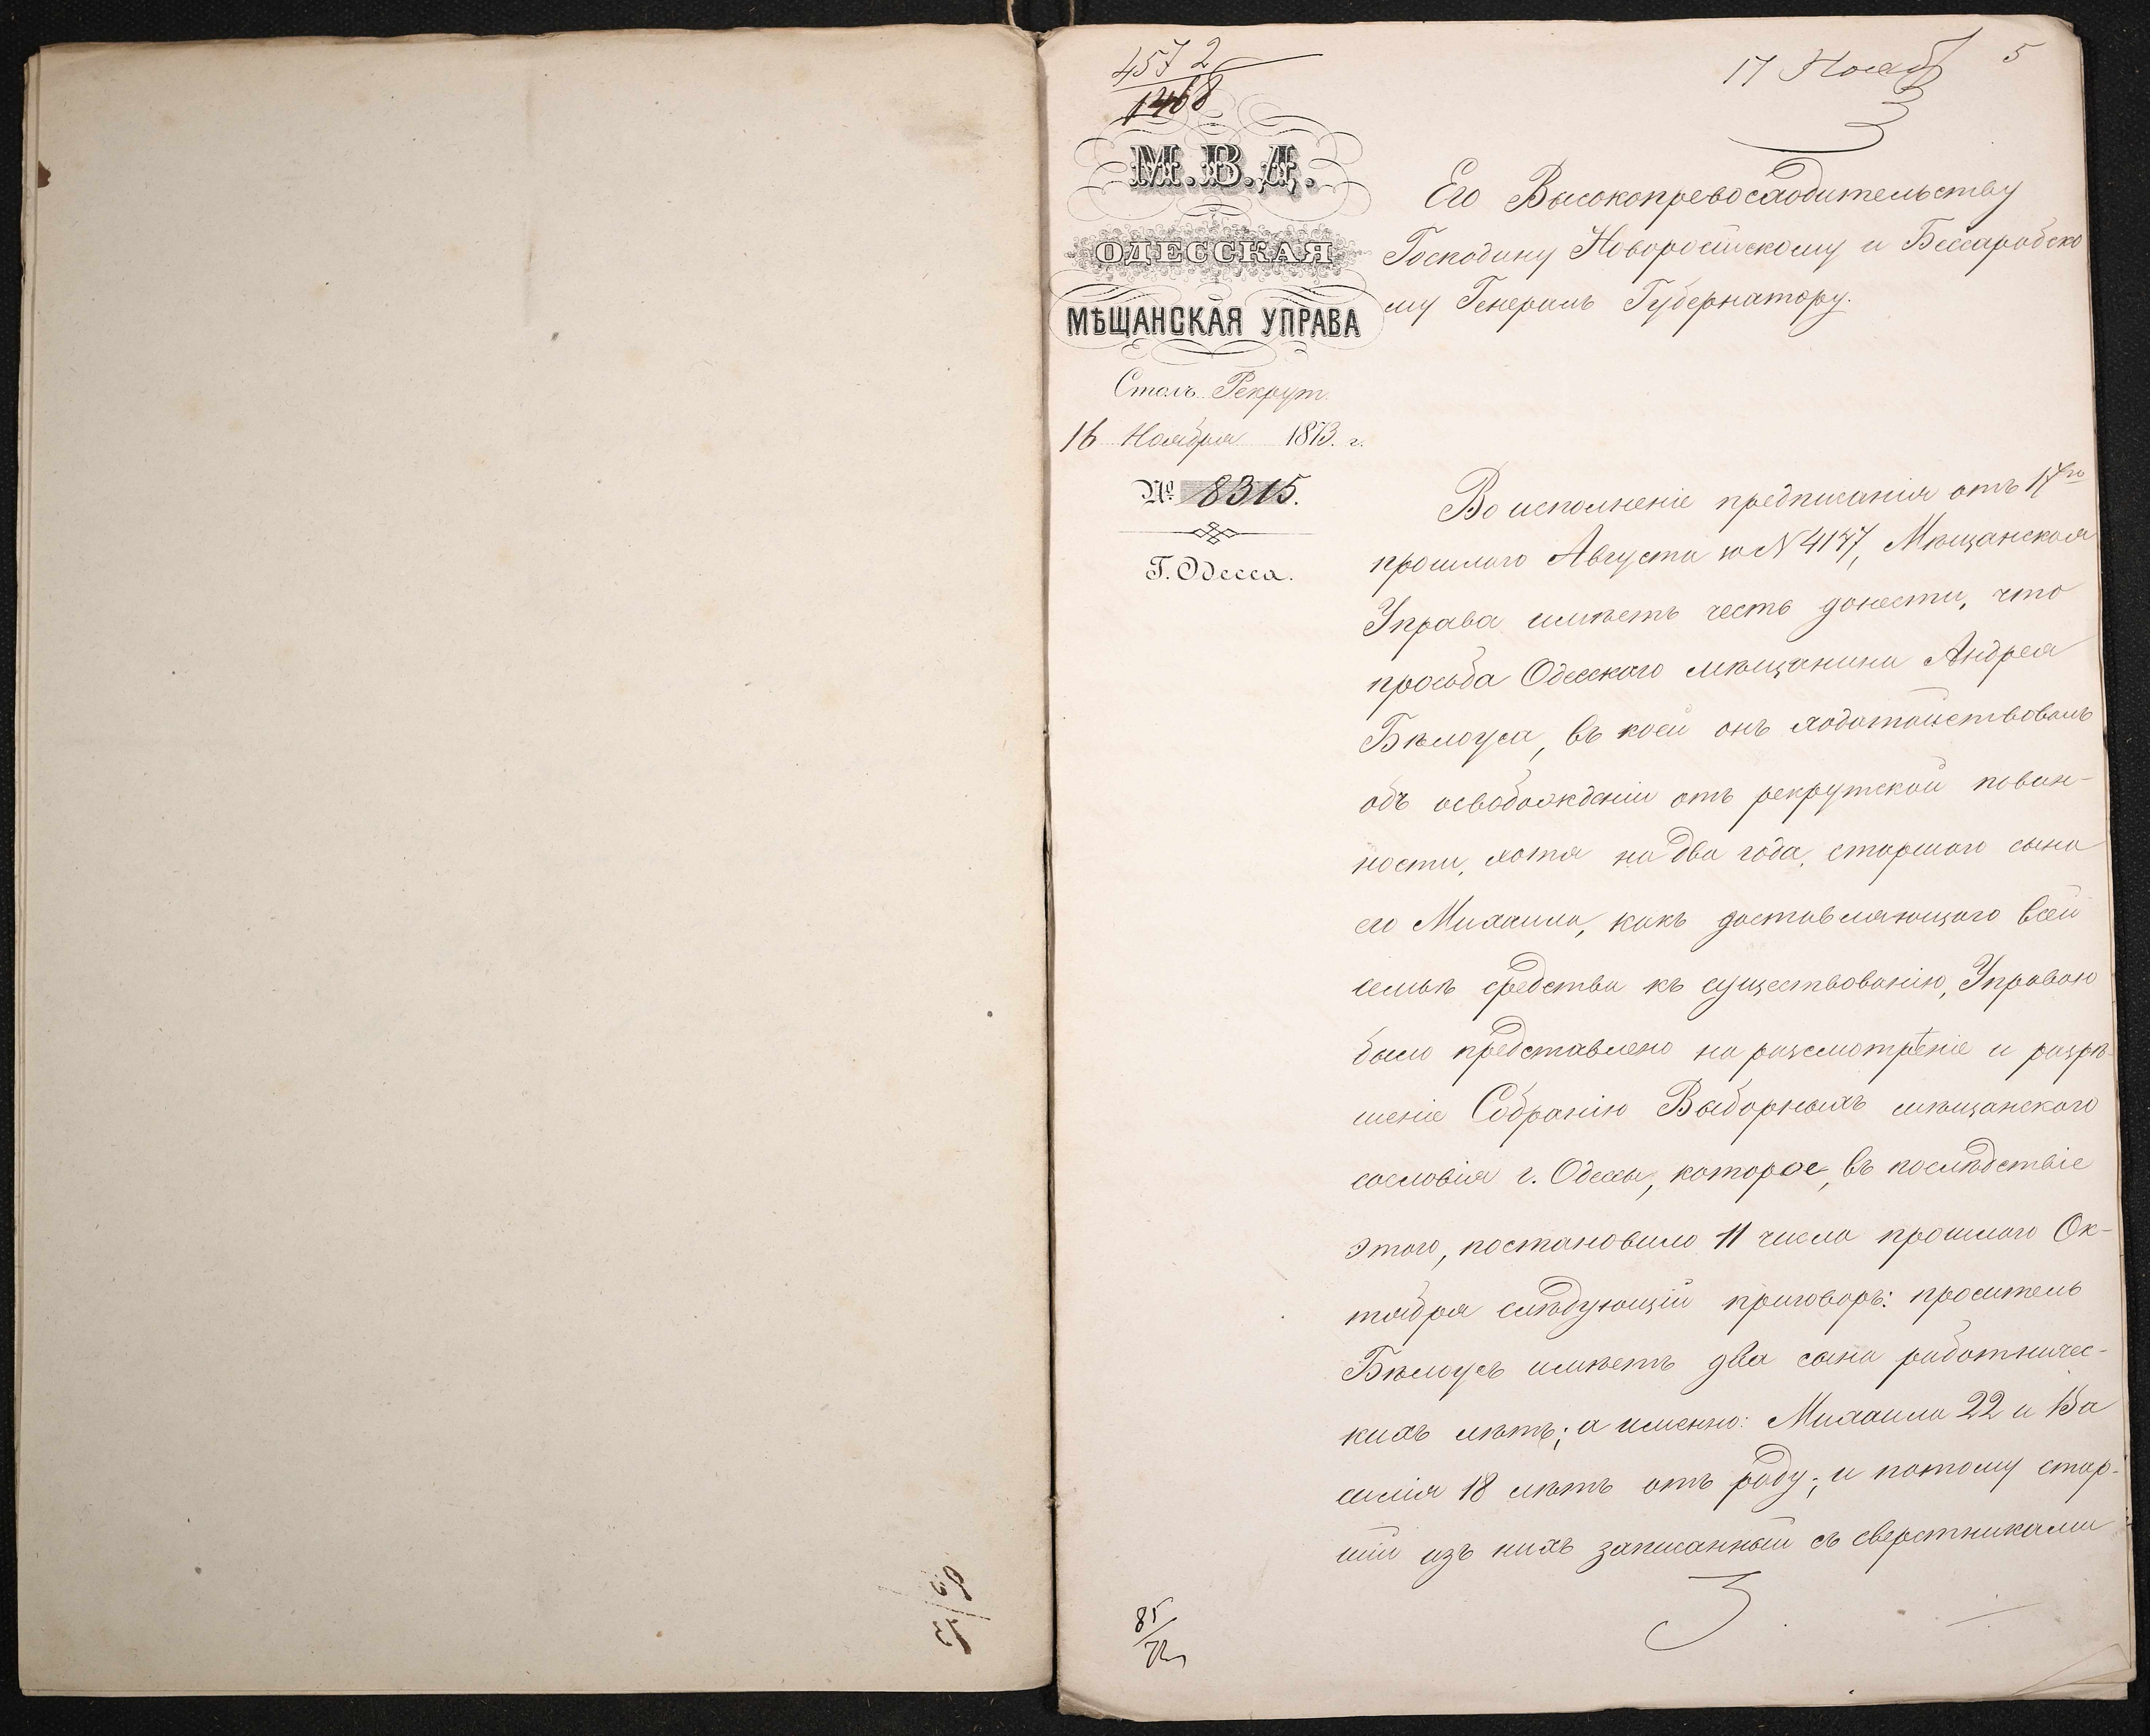 4572
1468
17 Нояб
5
М.В.Д.
ОДЕССКАЯ
МѢЩАНСКАЯ УПРАВА
Столъ Рекрут.
16 Ноября 1873. г.
№ 8315.
Г. Одесса.
Его Высокопревосходительству
Господину Новоросійскому и Бессарабско
му Генералъ Губернатору.
Во исполненіе предписанія отъ 17го
прошлаго Августа за N 4177, Мѣщанская
Управа имѣетъ честь донести, что
прозьба Одесскаго мѣщанина Андрея
Бѣлоуса, въ коей онъ ходатайствовалъ
объ освобожденіи отъ рекрутской повин-
ности, хотя на два года, старшаго сына
его Михаила, какъ доставляющаго всей
семьѣ средства къ существованію, Управою
было представлено на разсмотрѣніе и разрѣ
шеніе Собранію Выборныхъ мѣщанскаго
сословія г. Одессы, которое, въ послѣдствіе
этого, постановило 11 числа прошлаго Ок-
тября слѣдующій приговоръ: проситель
Бѣлоусъ имѣетъ два сына работничес-
кихъ лѣтъ; а именно: Михаила 22 и Ва
силія 18 лѣтъ отъ роду; и потому стар-
шій изъ нихъ записанный съ сверстниками
85/72